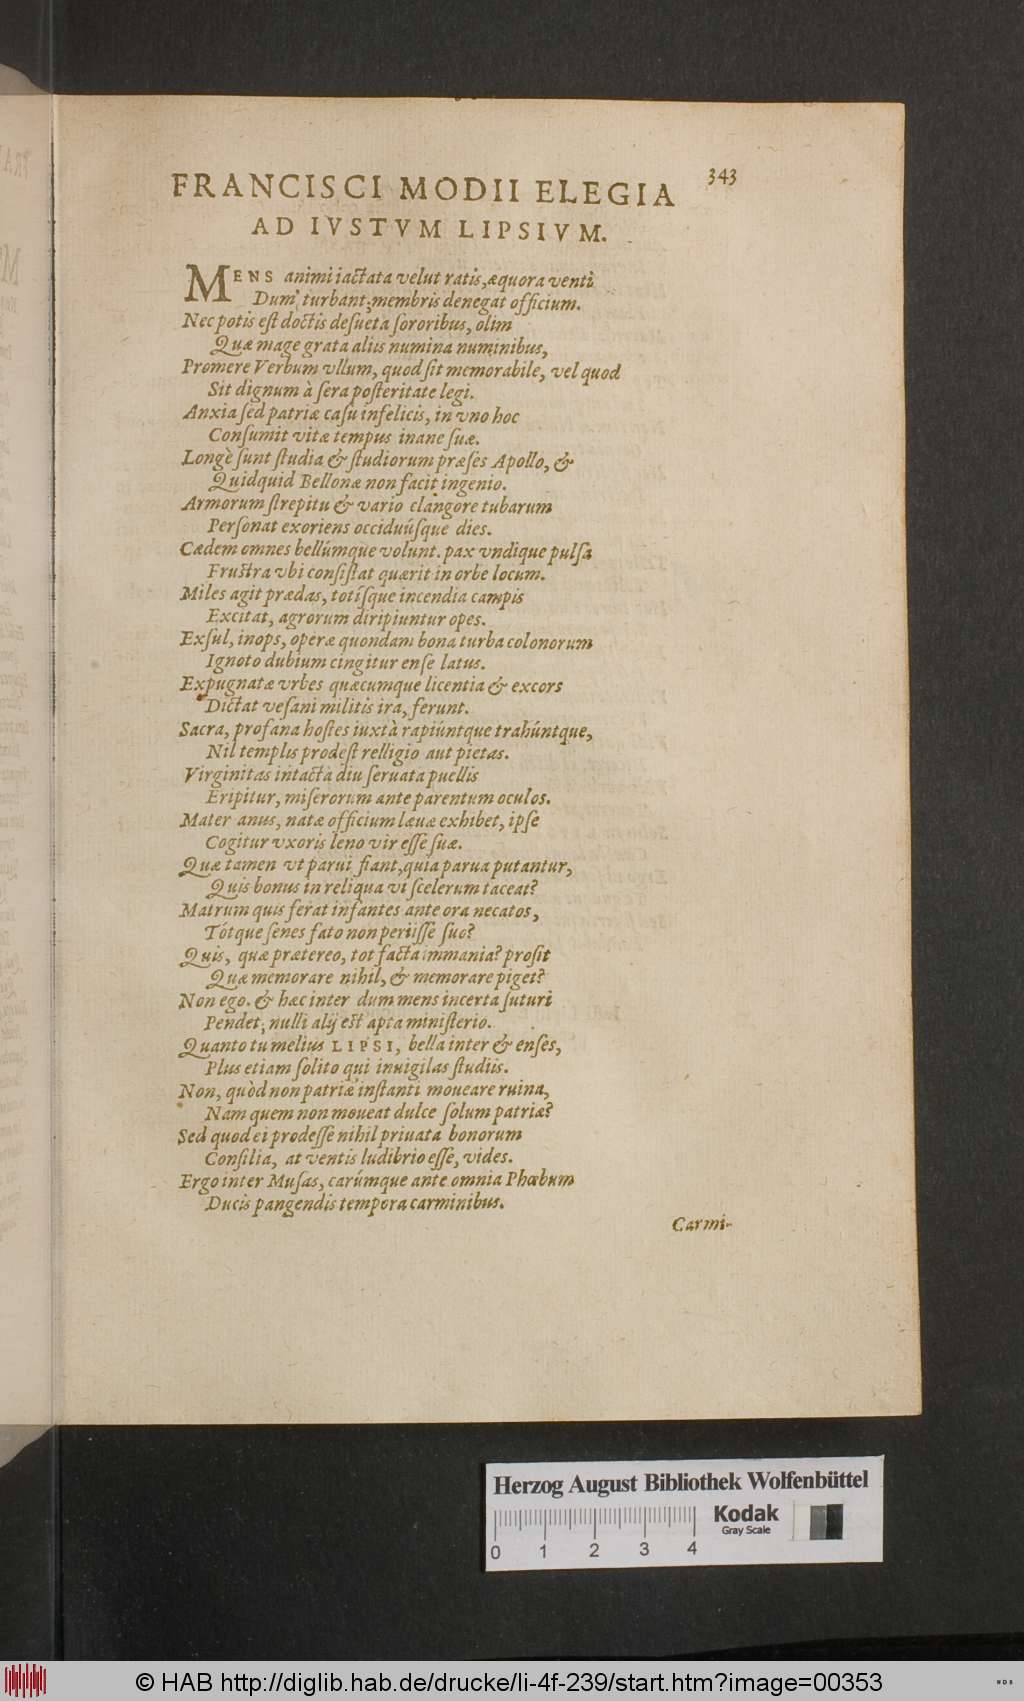 343
FRANCISCI MODII ELEGIA
AD IVSTVM LIPSIVM.
MENS animi iactata velut ratis, æquora venti
Dum turbant; membris denegat officium.
Nec potis eſt doctis deſueta ſororibus, olim
Quæ mage grata aliis numina numinibus,
Promere Verbum vllum, quod ſit memorabile, vel quod
Sit dignum à ſera poſteritate legi.
Anxia ſed patriæ caſu infelicis, in vno hoc
Conſumit vitæ tempus inane ſuæ.
Longè ſunt ſtudia & ſtudiorum præſes Apollo, &
Quidquid Bellonæ non facit ingenio.
Armorum ſtrepitu & vario clangore tubarum
Perſonat exoriens occiduúſque dies.
Cædem omnes bellúmque volunt. pax vndique pulſa
Fruſtra vbi conſiſtat quærit in orbe locum.
Miles agit prædas, totíſque incendia campis
Excitat, agrorum diripiuntur opes.
Exſul, inops, operæ quondam bona turba colonorum
Ignoto dubium cingitur enſe latus.
Expugnatæ vrbes quæcumque licentia & excors
Dictat veſani militis ira, ferunt.
Sacra, profana hoſtes iuxtà rapiúntque trahúntque,
Nil templis prodeſt relligio aut pietas.
Virginitas intacta diu ſeruata puellis
Eripitur, miſerorum ante parentum oculos.
Mater anus, natæ officium læuæ exhibet, ipſe
Cogitur vxoris leno vir eſſe ſuæ.
Quæ tamen vt parui fiant, quia parua putantur,
Quis bonus in reliqua vi ſcelerum taceat?
Matrum quis ferat infantes ante ora necatos,
Tótque ſenes fato non periiſſe ſuo?
Quis, quæ prætereo, tot facta immania? proſit
Quæ memorare nihil, & memorare piget?
Non ego. & hæc inter dum mens incerta futuri
Pendet, nulli alij eſt apta miniſterio.
Quanto tu melius LIPSI, bella inter & enſes,
Plus etiam ſolito qui inuigilas ſtudiis.
Non, quòd non patriæ inſtanti moueare ruina,
Nam quem non moueat dulce ſolum patriæ?
Sed quod ei prodeſſe nihil priuata bonorum
Conſilia, at ventis ludibrio eſſe, vides.
Ergo inter Muſas, carúmque ante omnia Phœbum
Ducis pangendis tempora carminibus.
Carmi-
Herzog August Bibliothek Wolfenbüttel
Kodak
Gray Scale
0 1 2 3 4
© HAB http://diglib.hab.de/drucke/li-4f-239/start.htm?image=00353